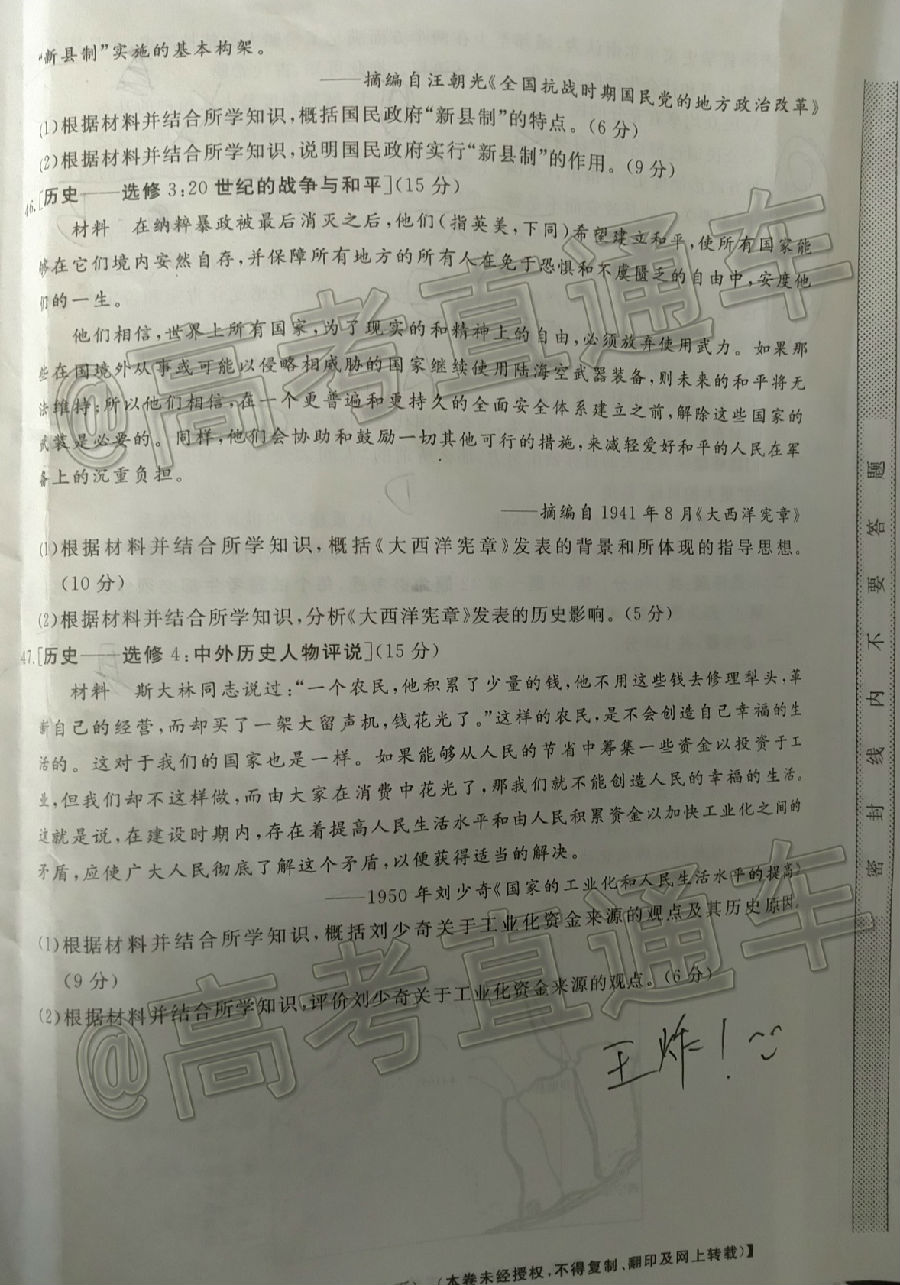 “新县制”实施的基本构架。
——摘编自汪朝光《全国抗战时期国民党的地方政治改革》
(1)根据材料并结合所学知识,概括国民政府“新县制”的特点。(6分)
(2)根据材料并结合所学知识,说明国民政府实行“新县制”的作用。(9分)
46.[历史——选修3:20世纪的战争与和平](15分)
材料 在纳粹暴政被最后消灭之后,他们(指英美,下同)希望建立和平,使所有国家能
够在它们境内安然自存,并保障所有地方的所有人在免于恐惧和不虞匮乏的自由中,安度他
们的一生。
他们相信,世界上所有国家,为了现实的和精神上的自由,必须放弃使用武力。如果那
些在国境外从事或可能以侵略相威胁的国家继续使用陆海空武器装备,则未来的和平将无
法维持;所以他们相信,在一个更普遍和更持久的全面安全体系建立之前,解除这些国家的
武装是必要的。同样,他们会协助和鼓励一切其他可行的措施,来减轻爱好和平的人民在军
备上的沉重负担。
——摘编自1941年8月《大西洋宪章》
(1)根据材料并结合所学知识,概括《大西洋宪章》发表的背景和所体现的指导思想。
(10分)
(2)根据材料并结合所学知识,分析《大西洋宪章》发表的历史影响。(5分)
47.[历史——选修4:中外历史人物评说](15分)
材料 斯大林同志说过:“一个农民,他积累了少量的钱,他不用这些钱去修理犁头,革
新自己的经营,而却买了一架大留声机,钱花光了。”这样的农民,是不会创造自己幸福的生
活的。这对于我们的国家也是一样。如果能够从人民的节省中筹集一些资金以投资于工
业,但我们却不这样做,而由大家在消费中花光了,那我们就不能创造人民的幸福的生活。
这就是说,在建设时期内,存在着提高人民生活水平和由人民积累资金以加快工业化之间的
矛盾,应使广大人民彻底了解这个矛盾,以便获得适当的解决。
——1950年刘少奇《国家的工业化和人民生活水平的提高》
(1)根据材料并结合所学知识,概括刘少奇关于工业化资金来源的观点及其历史原因。
(9分)
(2)根据材料并结合所学知识,评价刘少奇关于工业化资金来源的观点。(6分)
王炸!
(本卷未经授权,不得复制、翻印及网上转载)】
密封线内不要答题
@高考直通车
@高考直通车